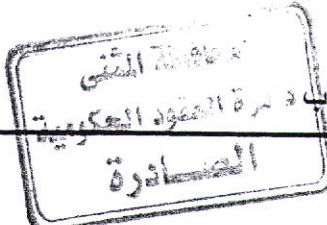 محافظة المثنى
دائرة العقود الحكومية
الصادرة